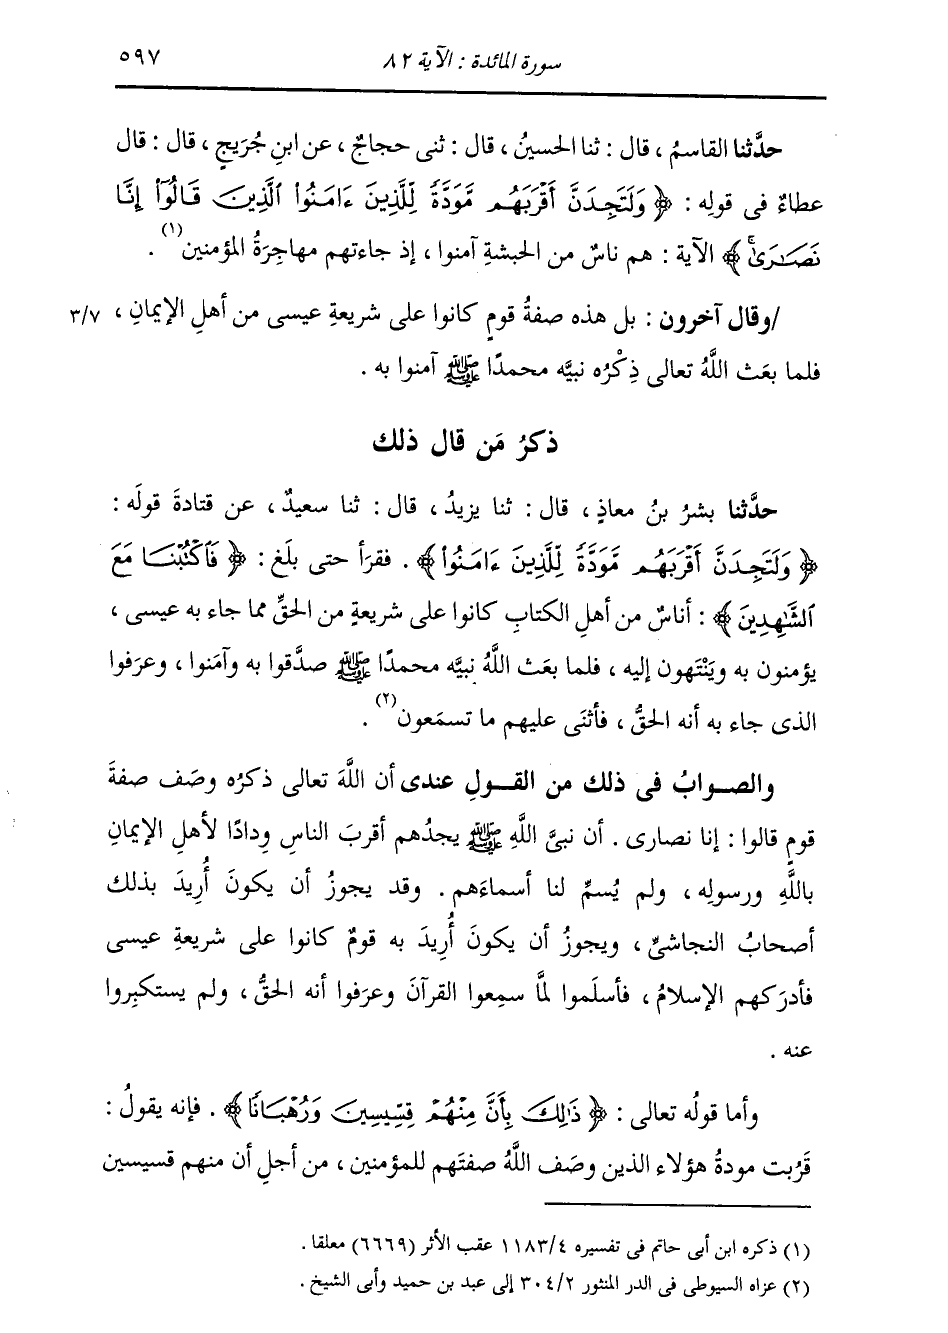 سورة المائدة : الآية ٨٢
٥٩٧
حدَّثنا القاسمُ ، قال : ثنا الحسينُ ، قال : ثنى حجاجٌ ، عن ابنِ جُرَيجٍ ، قال : قال
عطاءٌ فى قولِه : ﴿ وَلَتَجِدَنَّ أَقْرَبَهُم مَّوَدَّةً لِّلَّذِينَ ءَامَنُوا۟ ٱلَّذِينَ قَالُوٓا۟ إِنَّا
نَصَـٰرَىٰۚ ﴾ الآية : هم ناسٌ من الحبشةِ آمنوا ، إذ جاءتهم مهاجِرَةُ المؤمنين(١) .
/وقال آخرون : بل هذه صفةُ قومٍ كانوا على شريعةِ عيسى من أهلِ الإيمانِ ،
٣/٧
فلما بعَث اللَّهُ تعالى ذِكْرُه نبيَّه محمدًا ﷺ آمنوا به .
ذكرُ مَن قال ذلك
حدَّثنا بشرُ بنُ معاذٍ ، قال : ثنا يزيدُ ، قال : ثنا سعيدٌ ، عن قتادةَ قولَه :
﴿ وَلَتَجِدَنَّ أَقْرَبَهُم مَّوَدَّةً لِّلَّذِينَ ءَامَنُوا۟ ﴾ . فقرَأ حتى بلَغ : ﴿ فَٱكْتُبْنَا مَعَ
ٱلشَّـٰهِدِينَ ﴾ : أناسٌ من أهلِ الكتابِ كانوا على شريعةٍ من الحقِّ مما جاء به عيسى ،
يؤمنون به ويَنْتَهون إليه ، فلما بعَث اللَّهُ نبيَّه محمدًا ﷺ صدَّقوا به وآمَنوا ، وعرَفوا
الذى جاء به أنه الحقُّ ، فأثنَى عليهم ما تسمَعون(٢) .
والصوابُ فى ذلك من القولِ عندى أن اللَّهَ تعالى ذكرُه وصَف صفةَ
قومٍ قالوا : إنا نصارى . أن نبىَّ اللَّهِ ﷺ يجدُهم أقربَ الناسِ وِدادًا لأهلِ الإيمانِ
باللَّهِ ورسولِه ، ولم يُسمِّ لنا أسماءَهم . وقد يجوزُ أن يكونَ أُريدَ بذلك
أصحابُ النجاشىِّ ، ويجوزُ أن يكونَ أُريدَ به قومٌ كانوا على شريعةِ عيسى
فأدرَكهم الإسلامُ ، فأسلَموا لمَّا سمِعوا القرآنَ وعرَفوا أنه الحقُّ ، ولم يستكبِروا
عنه .
وأما قولُه تعالى : ﴿ ذَٰلِكَ بِأَنَّ مِنْهُمْ قِسِّيسِينَ وَرُهْبَانًا ﴾ . فإنه يقولُ :
قَرُبت مودةُ هؤلاء الذين وصَف اللَّهُ صفتَهم للمؤمنين ، من أجلِ أن منهم قسيسين
(١) ذكره ابن أبى حاتم فى تفسيره ١١٨٣/٤ عقب الأثر (٦٦٦٩) معلقا .
(٢) عزاه السيوطى فى الدر المنثور ٣٠٤/٢ إلى عبد بن حميد وأبى الشيخ .